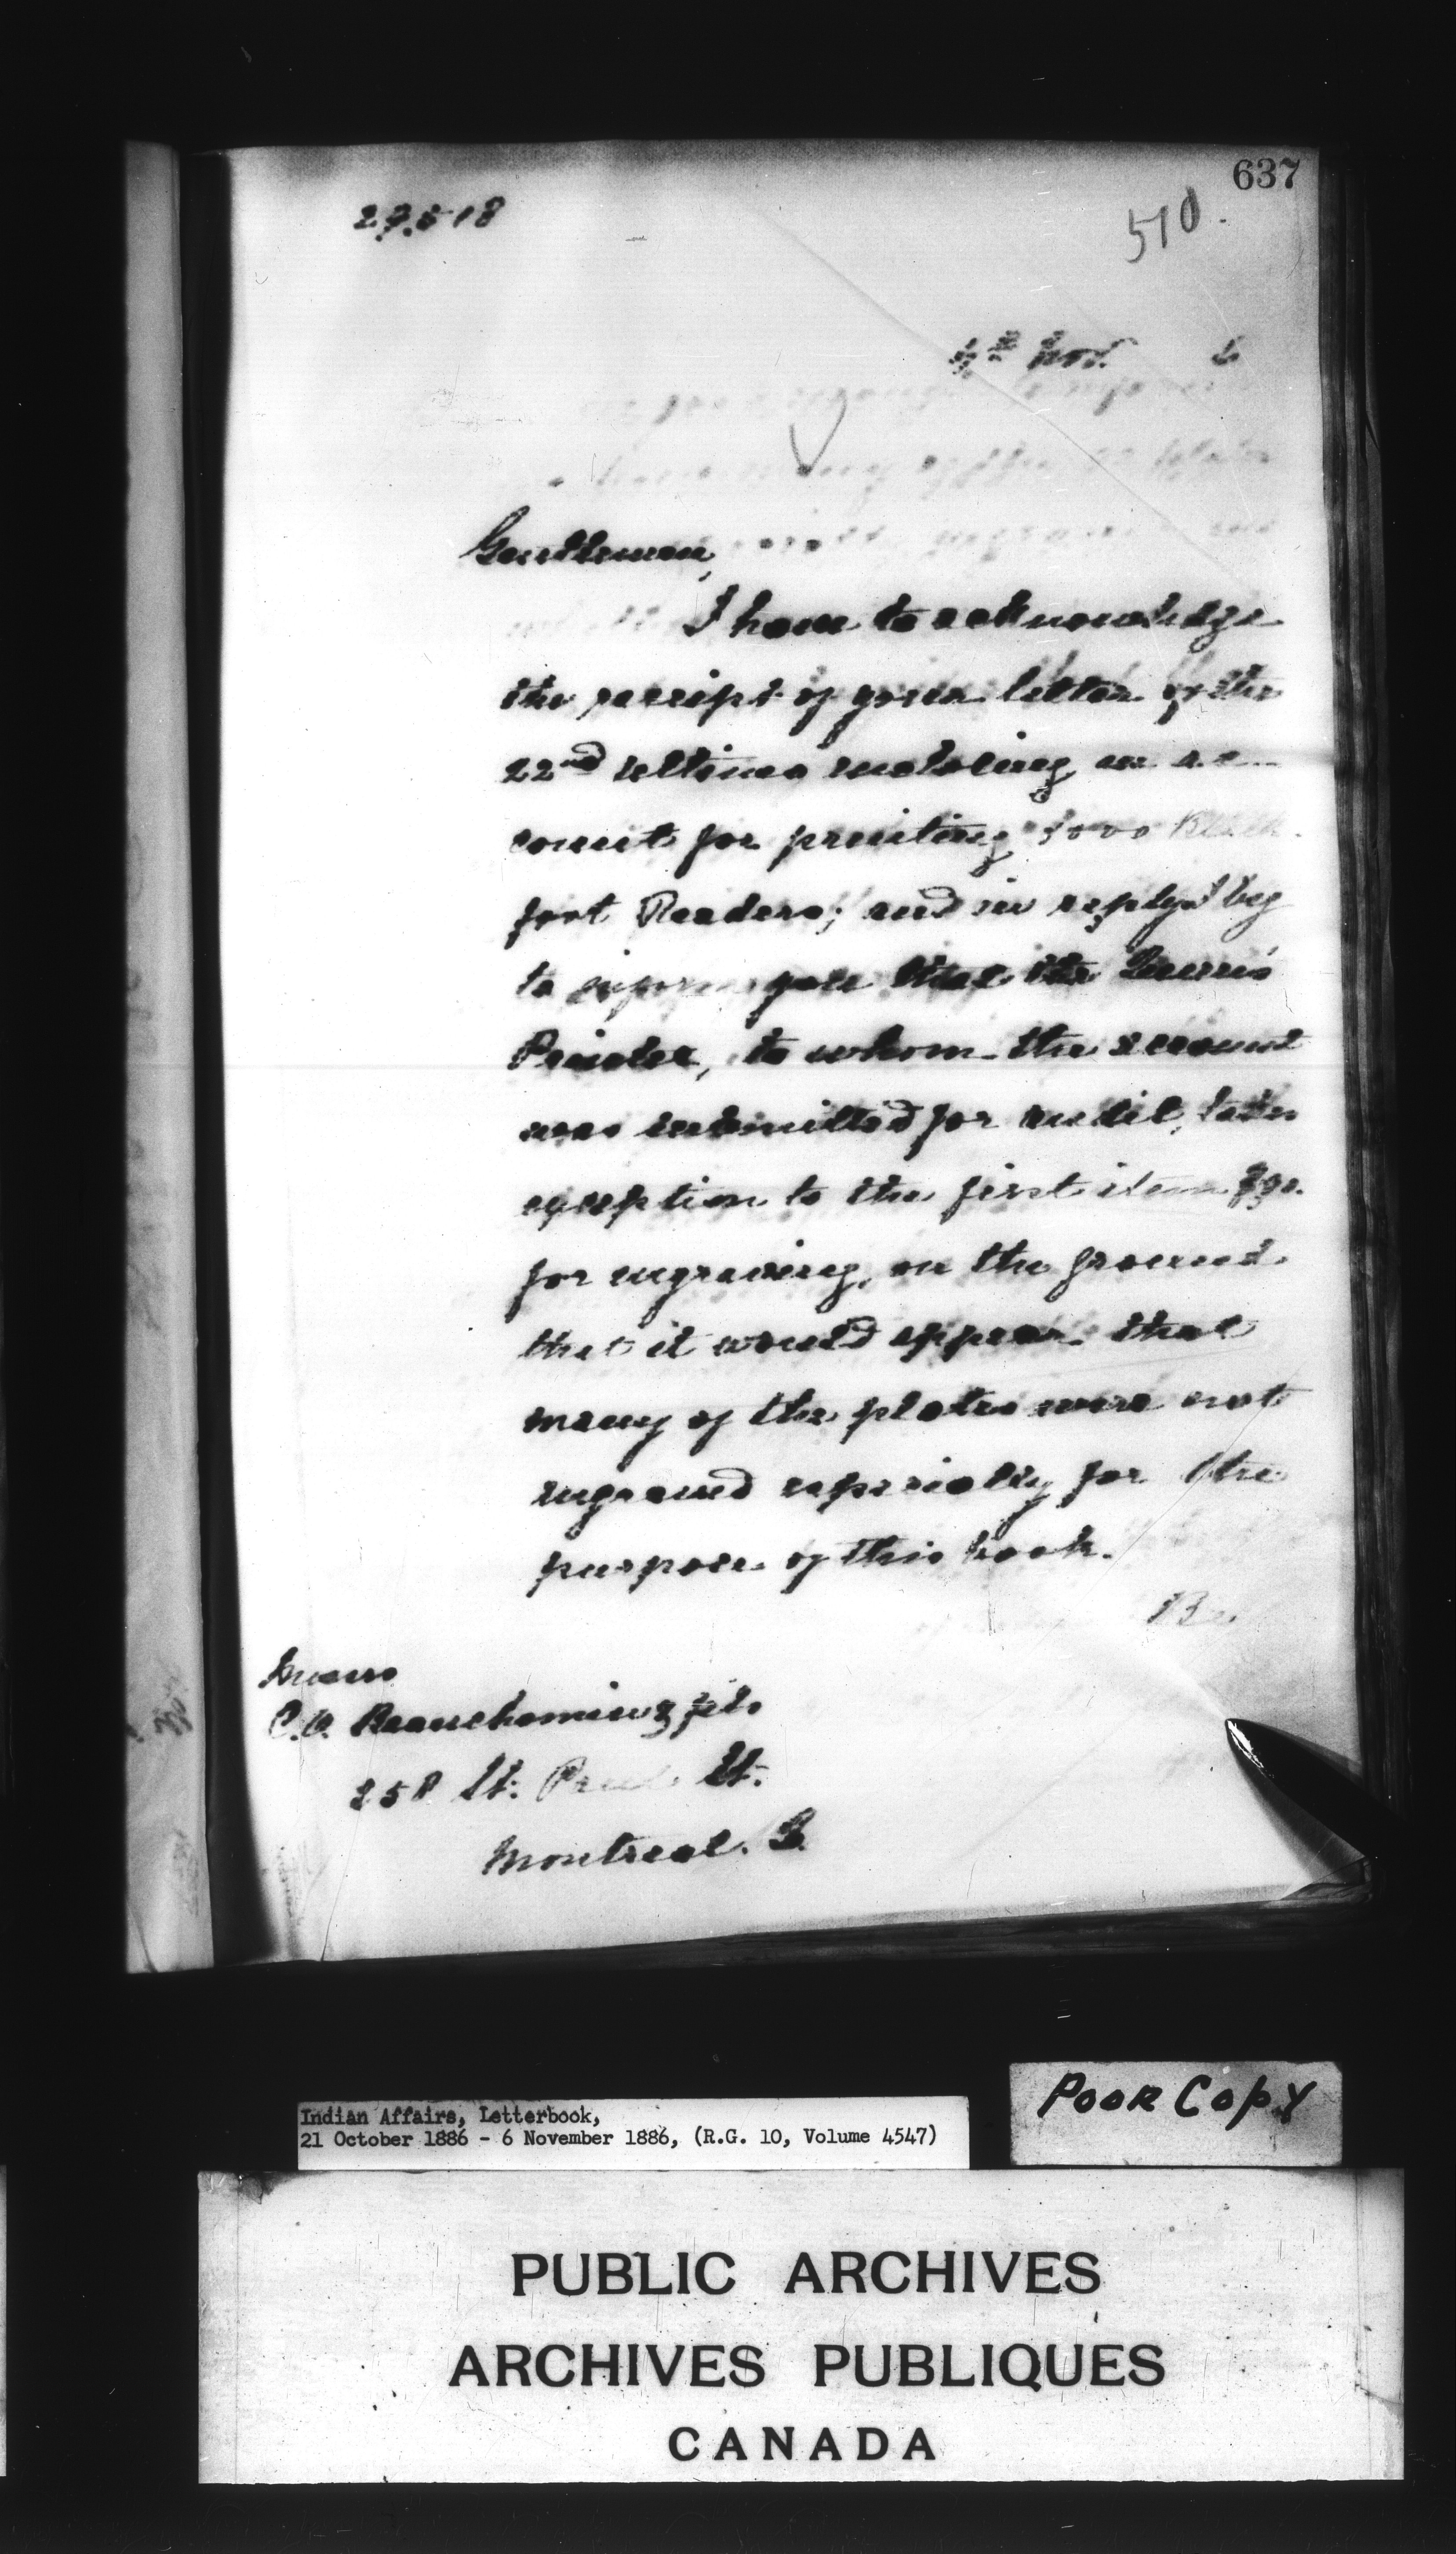 637
510.
4th Nov. 6
Gentlemen,
I have to acknowledge
the receipt of your letter of the
22nd ultimo enclosing an ac-
count for printing Black-
foot Readers; and in reply I beg
to inform you that the Queen's
Printer, to whom the account
was submitted for audit, takes
exception to the first item
for engraving, on the ground
that it would appear that
many of the plates were not
engraved especially for the
purpose of this book.
Messrs
C.O. Beauchemin & fils
258 St. Paul St.
Montreal. Q.
Indian Affairs, Letterbook,
21 October 1886 - 6 November 1886, (R.G. 10, Volume 4547)
Poor Copy
PUBLIC ARCHIVES
ARCHIVES PUBLIQUES
CANADA